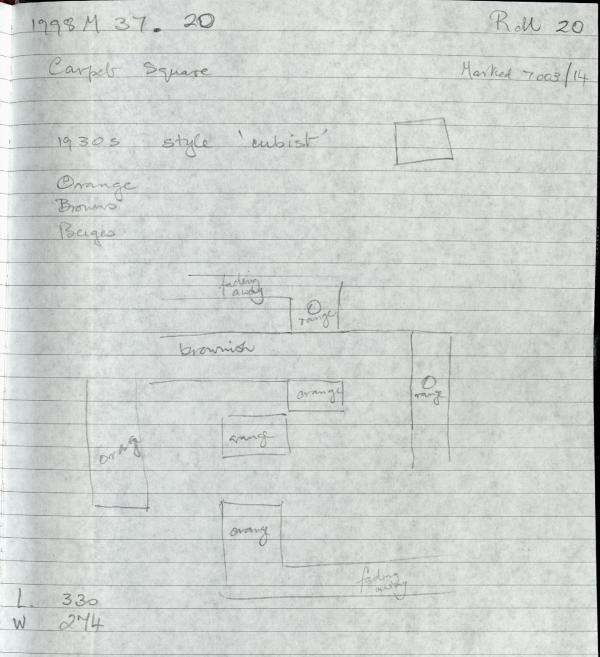 1998 M 37. 20 Roll 20
Carpet Square Marked 7003/14
1930s style 'cubist'
Orange
Browns
Beiges
fading
away
Orange
brownish
Orange
orange
orange
orang
orang
fading
away
L. 330
W 274